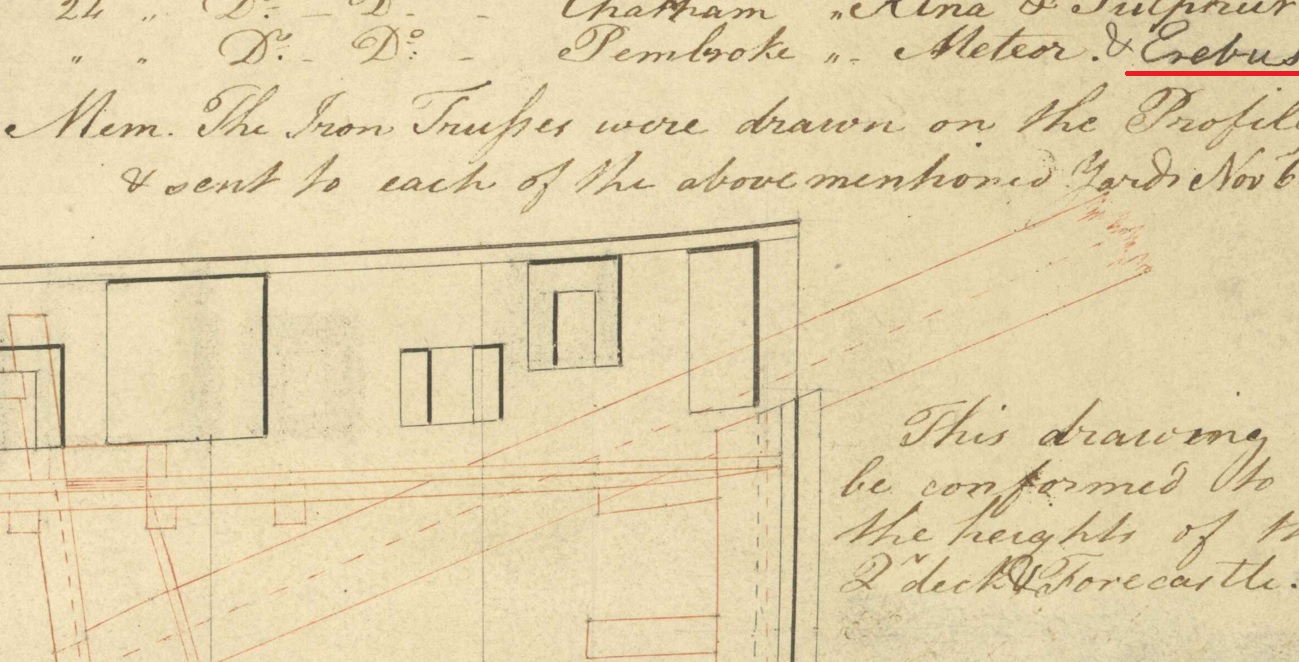 24 „ Do. - Do. - Chatham „ Ætna & Sulphur
„ „ Do. - Do. - Pembroke „ - Meteor. & Erebus
Mem. The Iron Trusses were drawn on the Profile
& sent to each of the above mentioned Yards Nov 6
This drawing
be conformed to
the heights of th
2d deck & Forecastle.